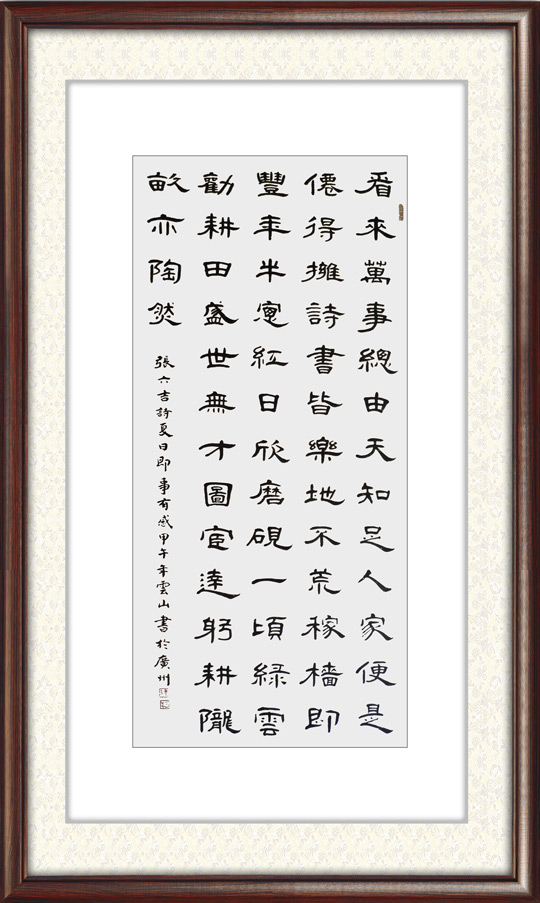 看來萬事總由天知足人家便是
僊得擁詩書皆樂地不荒稼穡即
豐年半窻紅日欣磨硯一頃綠雲
勸耕田盛世無才圖宦達躬耕隴
畝亦陶然
張六吉詩夏日即事有感甲午年雲山書於廣州